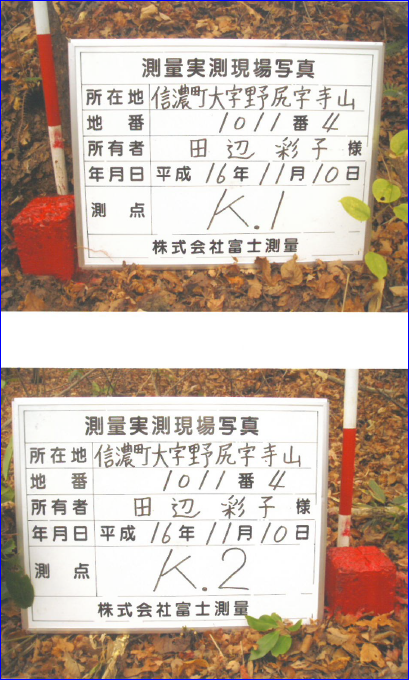 測量実測現場写真
所在地 信濃町大字野尻字寺山
地番 1011番4
所有者 田辺彩子様
年月日 平成16年11月10日
測点 K.1
株式会社富士測量
測量実測現場写真
所在地 信濃町大字野尻字寺山
地番 1011番4
所有者 田辺彩子様
年月日 平成16年11月10日
測点 K.2
株式会社富士測量